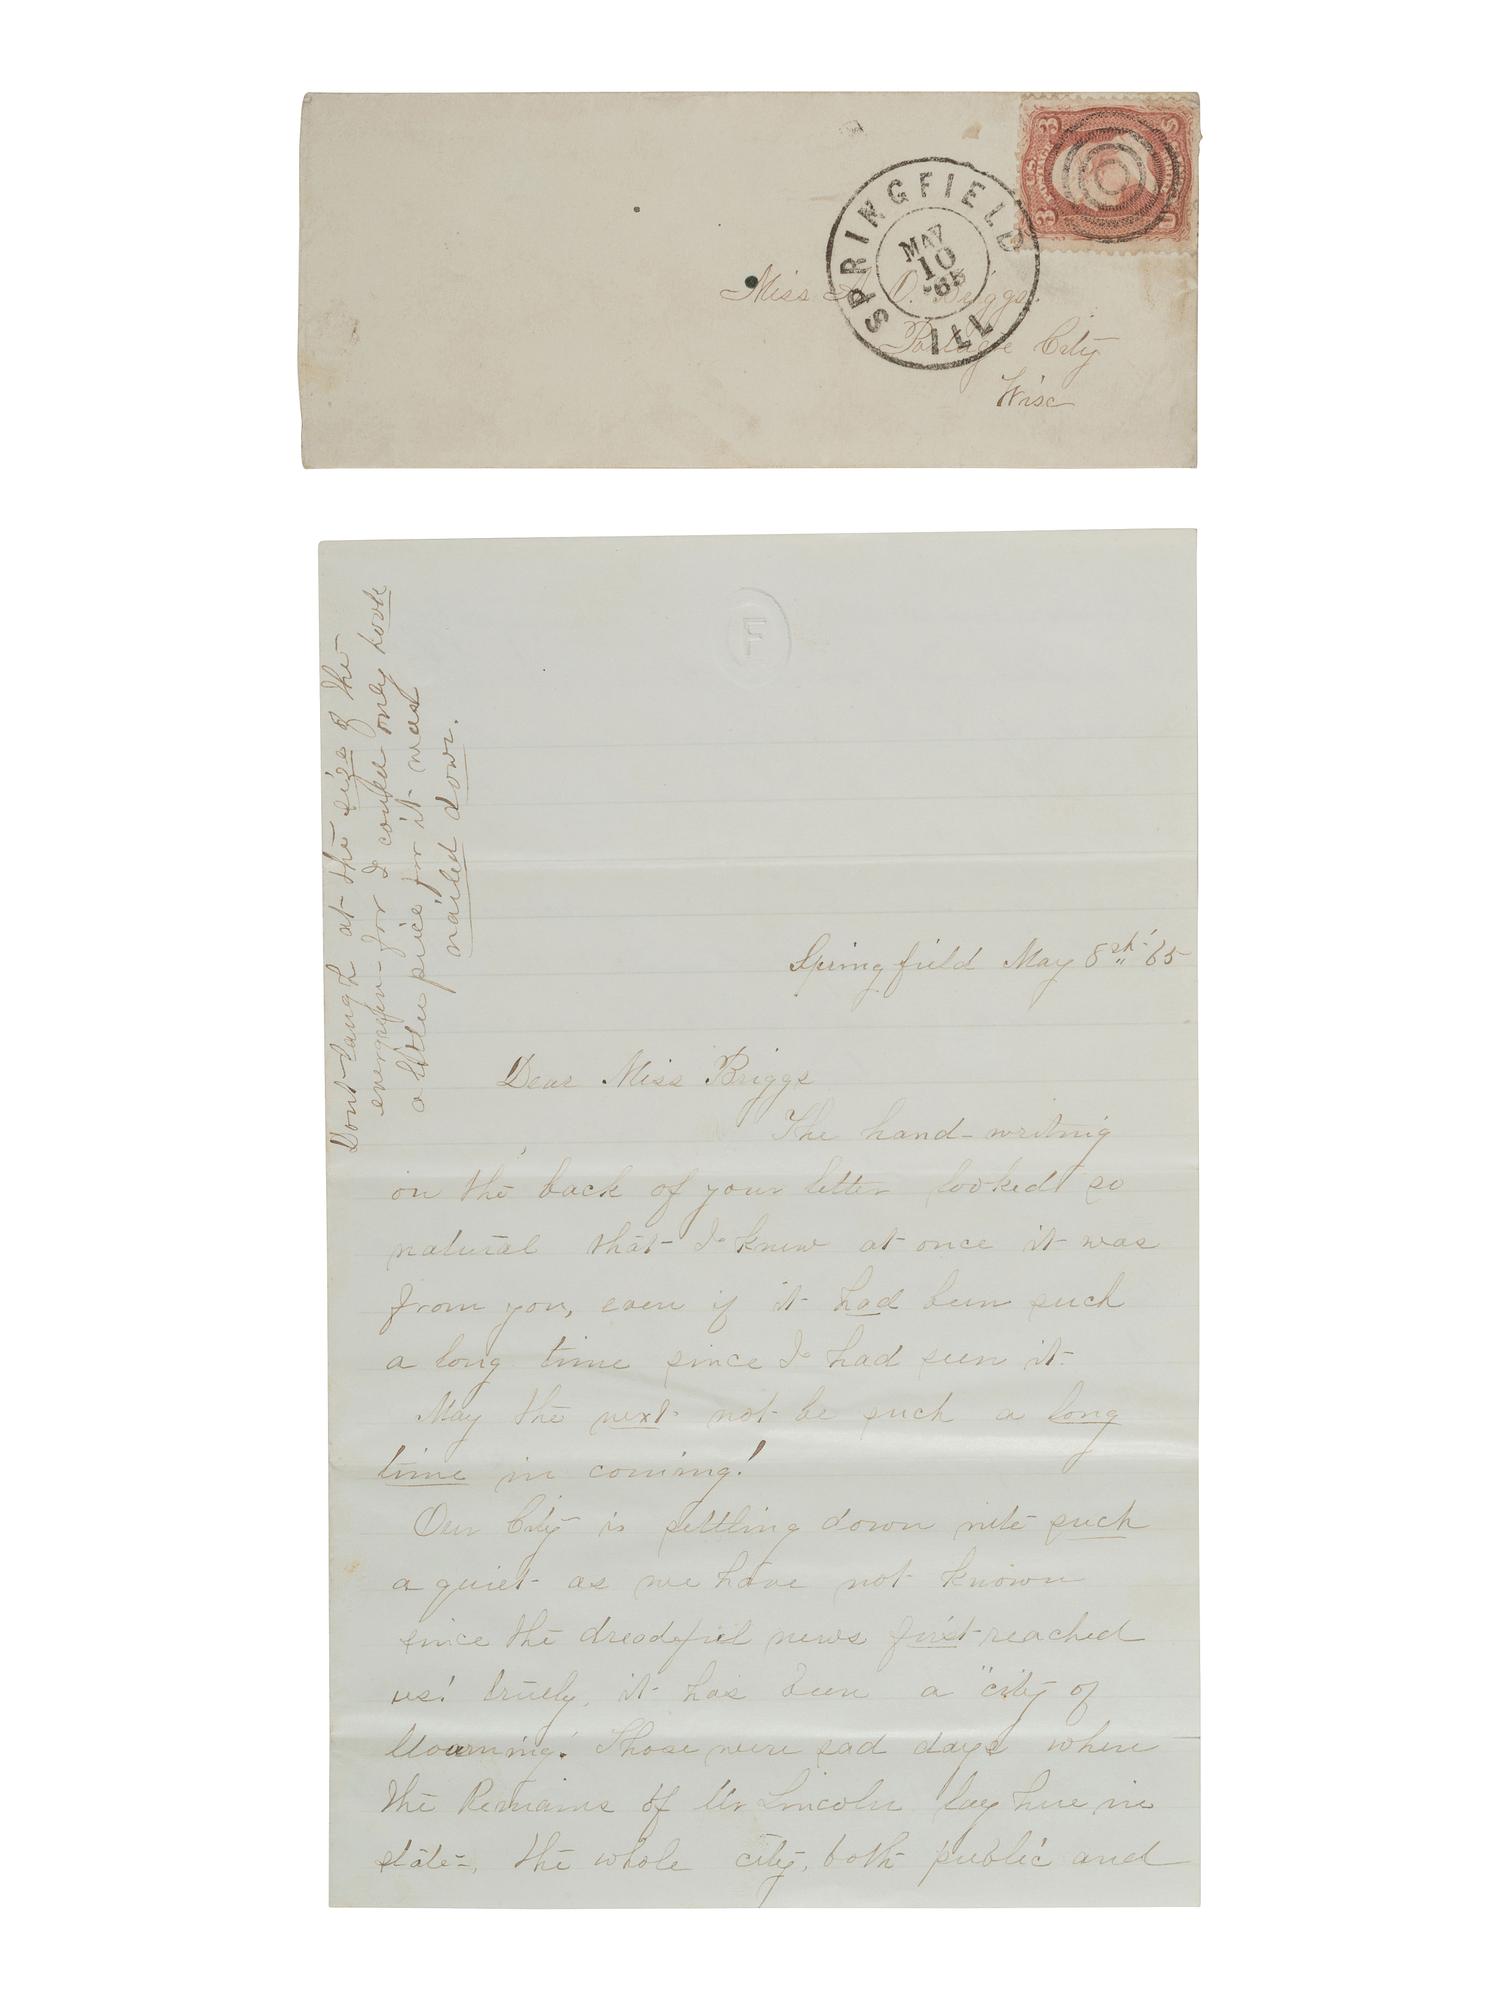 SPRINGFIELD ILL
MAY
10
'65
3 3
U.S.
Miss A. O. Briggs.
Portage City
Wisc
F
Dont laugh at the size of the
evergreen for I could only hook
a little piece for it was
nailed down.
Springfield May 8th '65
Dear Miss Briggs
The hand-writing
on the back of your letter looked so
natural that I knew at once it was
from you, even if it had been such
a long time since I had seen it.
May the next not be such a long
time in coming!
Our City is settling down into such
a quiet as we have not known
since the dreadful news first reached
us! truely, it has been a "city of
Mourning! Those were sad days when
the Remains of Mr Lincoln lay here in
state, the whole city, both public and